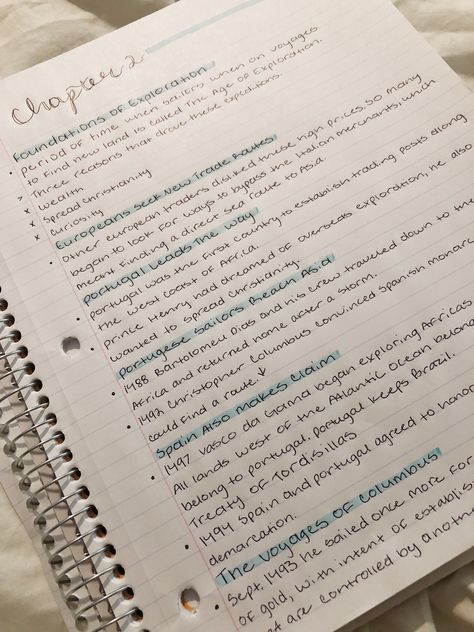 Chapter 2
Foundations of Exploration
period of time when sailors when on voyages
to find new land is called The Age of Exploration.
Three reasons that drove these expeditions.
Wealth
Spread Christianity
Curiosity
Europeans Seek New Trade Routes
other european traders disliked these high prices, so many
began to look for ways to bypass the Italian merchants, which
meant finding a direct sea route to Asia.
Portugal Leads The Way
portugal was the first country to establish trading posts along
the west coast of Africa.
Prince Henry had dreamed of overseas exploration, he also
wanted to spread Christianity.
Portugese Sailors Reach Asia
1488 Bartolomeu Dias and his crew traveled down to the
Africa and returned home after a storm.
1492 Christopher Columbus convinced Spanish monar
could find a route. ↓
Spain Also Makes Claim
1497 vasco da Gama began exploring Africas
All lands west of the Atlantic Ocean belong
belong to portugal. Portugal keeps Brazil.
Treaty of Tordisillas
1494 Spain and portugal agreed to honor
demarcation.
The Voyages of Columbus
Sept. 1493 he sailed once more for
of gold, with intent of establis
are controlled by anoth